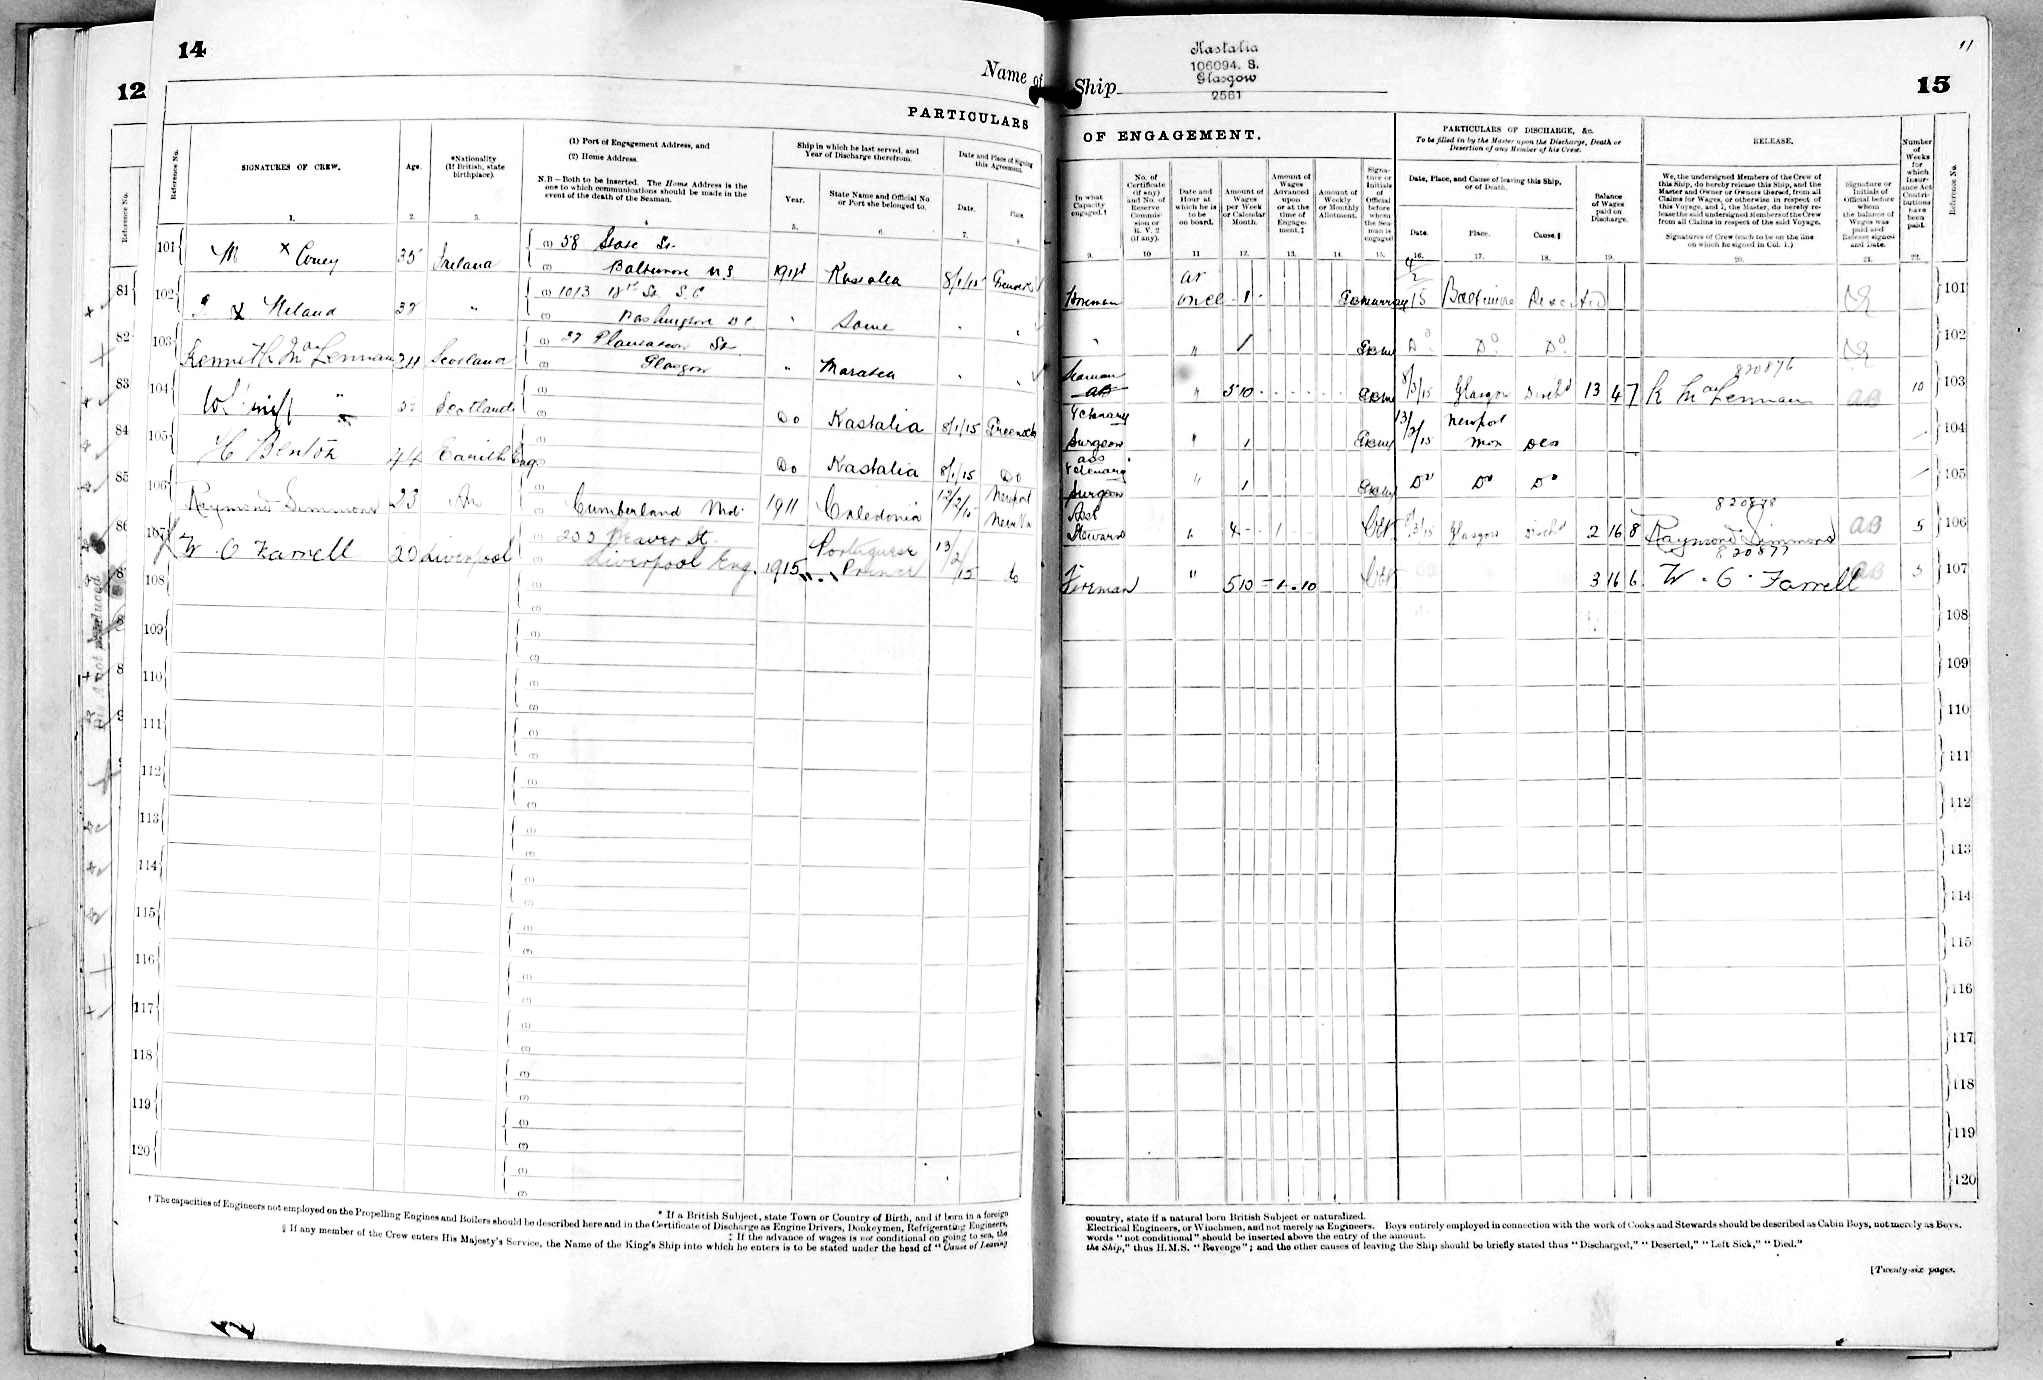 14
12
Name of Ship
Kastalia
106094. S.
Glasgow
2561
11
15
PARTICULARS OF ENGAGEMENT.
Reference No.
SIGNATURES OF CREW.
1.
Age.
2.
*Nationality
(If British, state
birthplace).
3.
(1) Port of Engagement Address, and
(2) Home Address.
N.B—Both to be inserted. The Home Address is the
one to which communications should be made in the
event of the death of the Seaman.
4
Ship in which he last served, and
Year of Discharge therefrom.
Year.
5.
State Name and Official No
or Port she belonged to.
6.
Date and Place of Signing
this Agreement.
Date.
7.
Place.
8
In what
Capacity
engaged.†
9.
No. of
Certificate
(if any)
and No. of
Reserve
Commis-
sion or
R. V. 2
(if any).
10
Date and
Hour at
which he is
to be
on board.
11
Amount of
Wages
per Week
or Calendar
Month.
12.
Amount of
Wages
Advanced
upon
or at the
time of
Engage-
ment.‡
13.
Amount of
Weekly
or Monthly
Allotment.
14.
Signa-
ture or
Initials
of
Official
before
whom
the Sea-
man is
engaged
15.
PARTICULARS OF DISCHARGE, &c.
To be filled in by the Master upon the Discharge, Death or
Desertion of any Member of his Crew.
Date, Place, and Cause of leaving this Ship,
or of Death.
Date.
16.
Place.
17.
Cause.§
18.
Balance
of Wages
paid on
Discharge.
19.
RELEASE.
We, the undersigned Members of the Crew of
this Ship, do hereby release this Ship, and the
Master and Owner or Owners thereof, from all
Claims for Wages, or otherwise in respect of
this Voyage, and I, the Master, do hereby re-
lease the said undersigned Members of the Crew
from all Claims in respect of the said Voyage.
Signatures of Crew (each to be on the line
on which he signed in Col. 1.)
20.
Signature or
Initials of
Official before
whom
the balance of
Wages was
paid and
Release signed
and Date.
21.
Number
of
Weeks
for
which
Insur-
ance Act
Contri-
butions
have
been
paid.
22.
Reference No.
101 M x Coney 35 Ireland (1) 58 State St. (2) Baltimore 1914 Kastalia 8/1/15 Fireman at once 1 4/2/15 Baltimore Deserted 101
102 x Heland " (1) 1013 18th St. S.E. (2) Washington DC " Same " 1 Do Do Do 102
103 Kenneth MacLennan Scotland (1) 27 Plantation St (2) Glasgow " Maratea Seaman AB " 5 10 8/3/15 Glasgow Disch'd 13 4 7 820876 K MacLennan AB 10 103
104 Scotland Do Kastalia 8/1/15 Greenock Veterinary Surgeon " 1 13/2/15 Newport Mon Des 104
105 H Benton 44 Earith Eng. Do Kastalia 8/1/15 Do Ass Veterinary Surgeon " 1 Do Do Do 105
106 Raymond Simmons 23 (2) Cumberland Md. 1911 Caledonia 12/2/15 Newport News Va Asst Steward 8/3/15 Glasgow Disch'd 2 16 8 820878 Raymond Simmons AB 5 106
107 W. C Farrell 20 Liverpool (1) 203 Beaver St. (2) Liverpool Eng. 1915 Portuguese Prince 13/2/15 Fireman " 5 10 1 . 10 3 16 6 820877 W. C. Farrell AB 5 107
108 (1) (2) 108
109 (1) (2) 109
110 (1) (2) 110
111 (1) (2) 111
112 (1) (2) 112
113 (1) (2) 113
114 (1) (2) 114
115 (1) (2) 115
116 (1) (2) 116
117 (1) (2) 117
118 (1) (2) 118
119 (1) (2) 119
120 (1) (2) 120
* If a British Subject, state Town or Country of Birth, and if born in a foreign country, state if a natural born British Subject or naturalized.
† The capacities of Engineers not employed on the Propelling Engines and Boilers should be described here and in the Certificate of Discharge as Engine Drivers, Donkeymen, Refrigerating Engineers, Electrical Engineers, or Winchmen, and not merely as Engineers. Boys entirely employed in connection with the work of Cooks and Stewards should be described as Cabin Boys, not merely as Boys.
‡ If the advance of wages is not conditional on going to sea, the words "not conditional" should be inserted above the entry of the amount.
§ If any member of the Crew enters His Majesty's Service, the Name of the King's Ship into which he enters is to be stated under the head of "Cause of Leaving the Ship," thus H.M.S. "Revenge"; and the other causes of leaving the Ship should be briefly stated thus "Discharged," "Deserted," "Left Sick," "Died."
[Twenty-six pages.